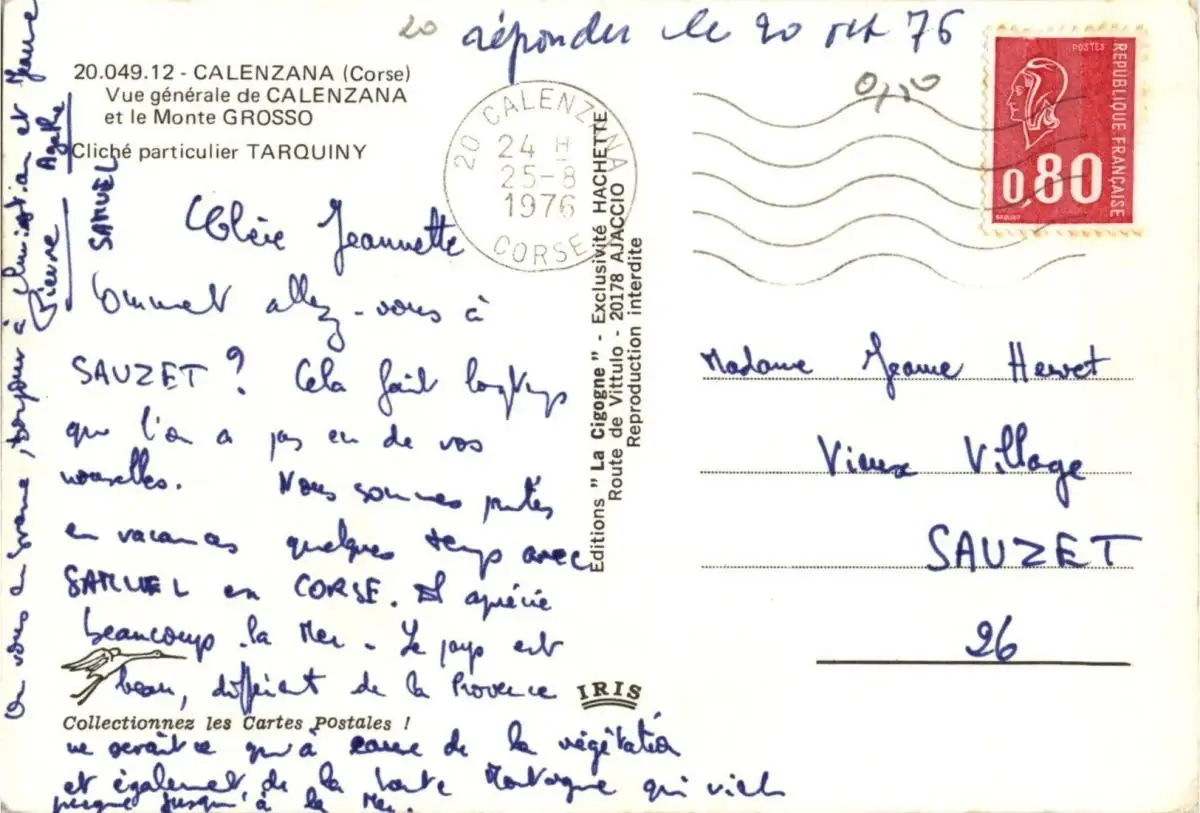 20 répondu le 20 oct 76
20.049.12 - CALENZANA (Corse)
Vue générale de CALENZANA
et le Monte GROSSO
Cliché particulier TARQUINY
20 CALENZANA
24 H
25-8
1976
CORSE
0,50
POSTES
REPUBLIQUE FRANÇAISE
0,80
Chère Jeannette
Comment allez-vous à
SAUZET ? Cela fait longtemps
que l'on a pas eu de vos
nouvelles. Nous sommes partis
en vacances quelques temps avec
SAMUEL en CORSE. Il apprécie
beaucoup la Mer. Le pays est
beau, différent de la Provence
ne serait ce qu'à cause de la végétation
et également de la haute Montagne qui vient
presque jusqu'à la Mer.
On vous embrasse, bonjour à Christian et Jeanne
Pierre Agathe
SAMUEL
Editions "La Cigogne" - Exclusivité HACHETTE
Route de Vittulo - 20178 AJACCIO
Reproduction interdite
Madame Jeanne Hervet
Vieux Village
SAUZET
26
IRIS
Collectionnez les Cartes Postales !